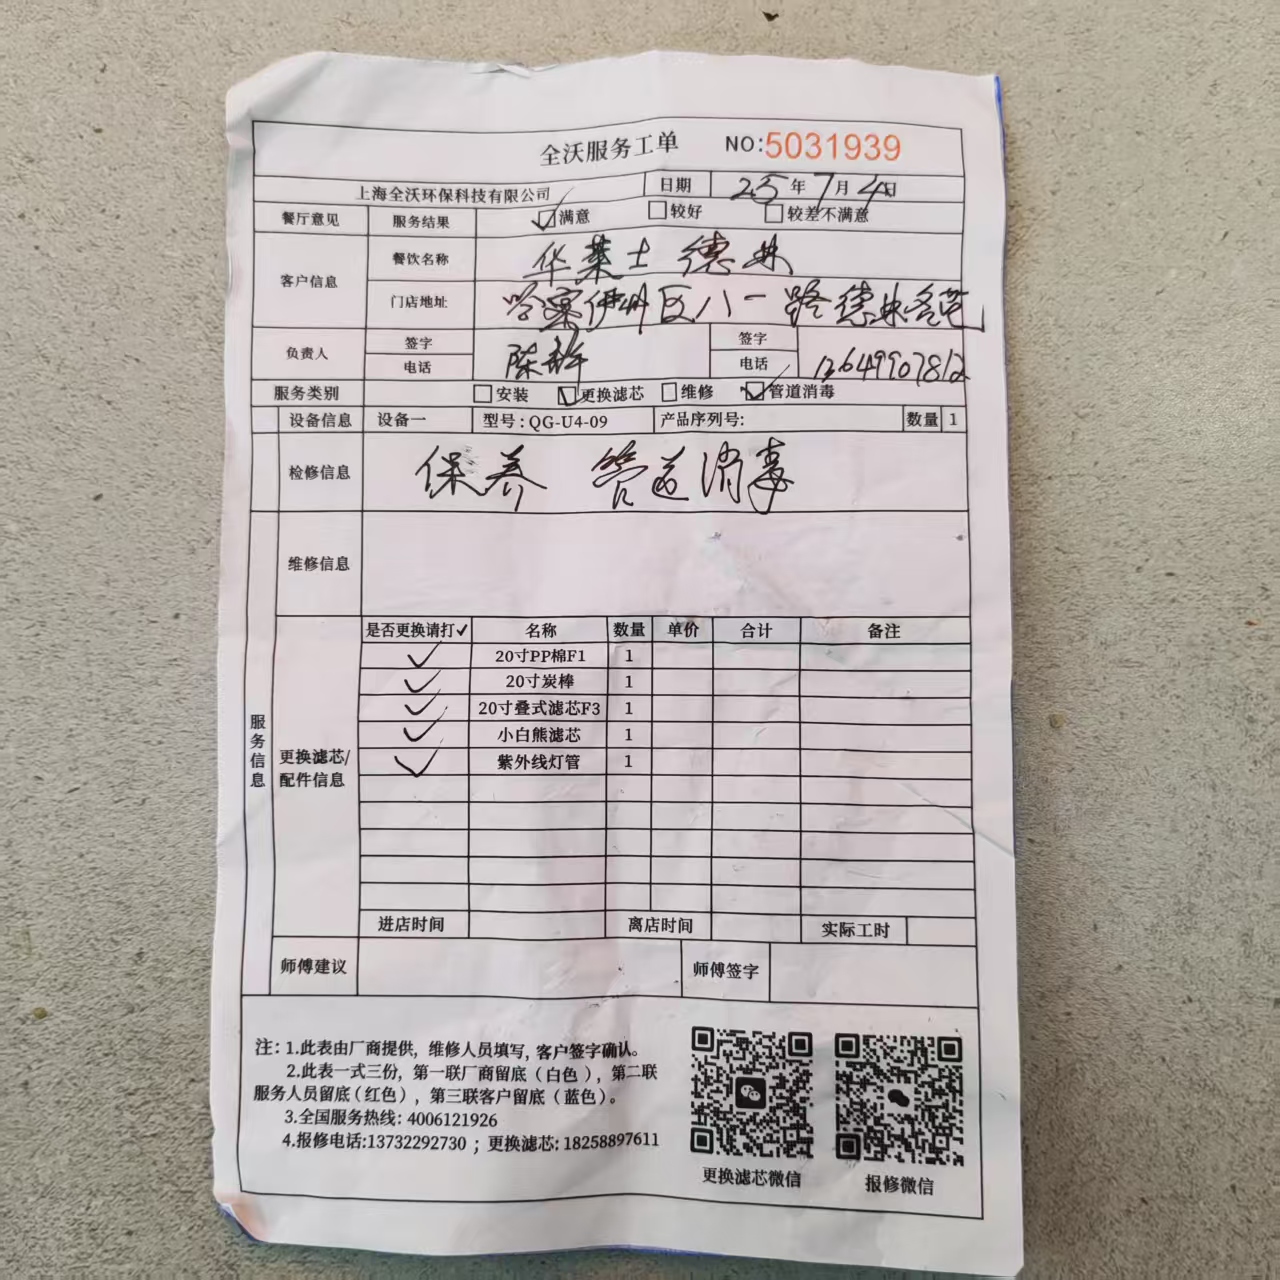 全沃服务工单 NO:5031939
上海全沃环保科技有限公司 日期 25年7月4日
餐厅意见 服务结果 ☑满意 □较好 □较差不满意
客户信息 餐饮名称 华莱士 德林
门店地址 哈密伊州区八一路德林名苑
负责人 签字 陈 签字
电话 电话 13649907812
服务类别 □安装 ☑更换滤芯 □维修 ☑管道消毒
设备信息 设备一 型号:QG-U4-09 产品序列号: 数量 1
检修信息 保养 管道消毒
维修信息
服务信息
更换滤芯/配件信息
是否更换请打✓ 名称 数量 单价 合计 备注
✓ 20寸PP棉F1 1
✓ 20寸炭棒 1
✓ 20寸叠式滤芯F3 1
✓ 小白熊滤芯 1
✓ 紫外线灯管 1
进店时间 离店时间 实际工时
师傅建议 师傅签字
注: 1.此表由厂商提供，维修人员填写，客户签字确认。
2.此表一式三份，第一联厂商留底（白色），第二联
服务人员留底（红色），第三联客户留底（蓝色）。
3.全国服务热线: 4006121926
4.报修电话:13732292730 ; 更换滤芯: 18258897611
更换滤芯微信 报修微信